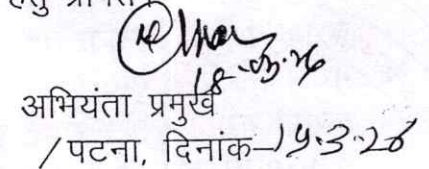 हेतु प्रेषित।
18-03-26
अभियंता प्रमुख
/ पटना, दिनांक-19.3-26